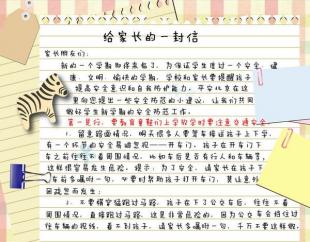 给家长的一封信
家长朋友们:
新的一个学期即将来临了,为保证学生度过一个安全、健
康、文明、愉快的学期,学校和家长要提醒孩子
提高安全意识和自我防护能力,平安北京在这
里向您提出一些安全防范的小建议,让我们共同
做好学生新学期的安全防范工作。
第一是行,要教育育鞋们上学放学时要注意交通安全
1、留意路面情况,明天很多人要驾车接送孩子上下学,
有一个环节的安全易被忽视——开车门,孩子在开车门下
车之前往往不看周围情况,比如车后是否有行人和车辆等,
这样很容易发生危险,提示:为了安全,请家长在孩子下
车前多嘱咐一句,必要时帮助孩子打开车门,莫让意外
因疏忽而发生;
2、不要横穿猛跑过马路,孩子在下了公交车后,往往不看
周围情况,直接跑过马路,这是非常危险的,因为公交车会挡住过
往车辆的视线,看不到孩子,请家长多嘱咐一句,千万不要这样